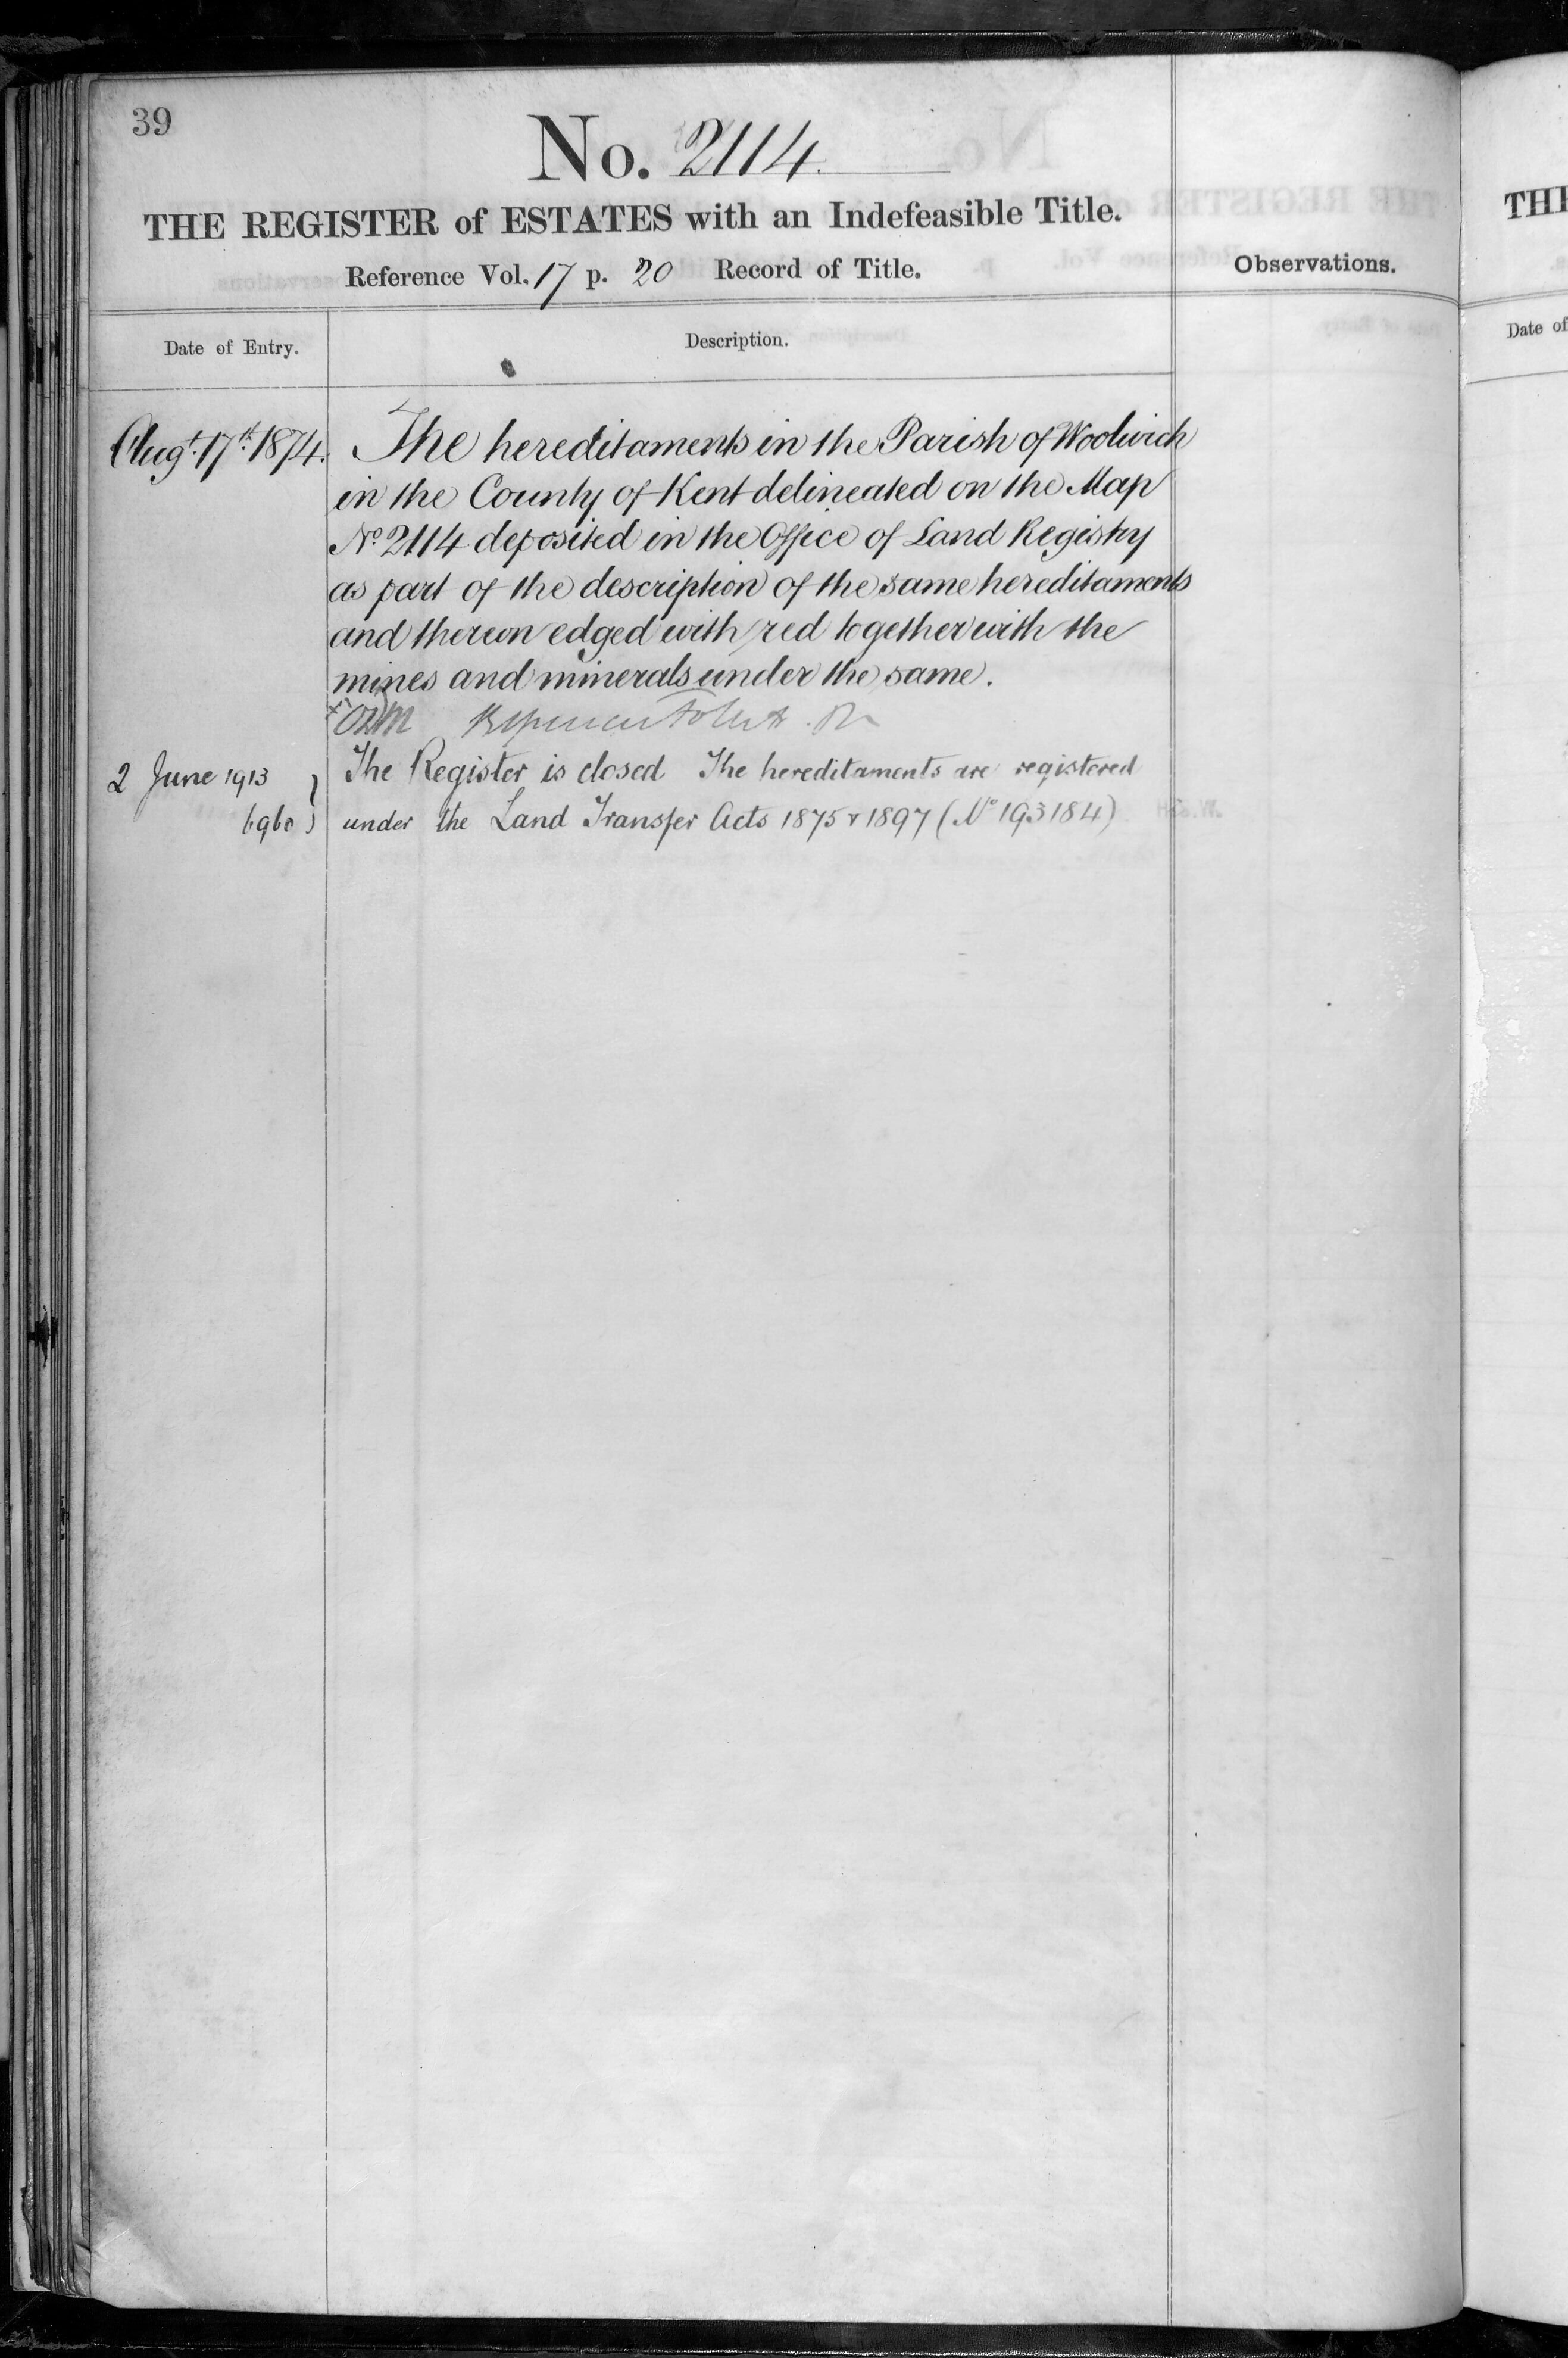 39
No. 2114.
THE REGISTER of ESTATES with an Indefeasible Title.
Reference Vol. 17 p. 20 Record of Title.
Observations.
Date of Entry.
Description.
Augt. 17th. 1874.
The hereditaments in the Parish of Woolwich
in the County of Kent delineated on the Map
No. 2114 deposited in the Office of Land Registry
as part of the description of the same hereditaments
and thereon edged with red together with the
mines and minerals under the same.
2 June 1913
The Register is closed The hereditaments are registered
under the Land Transfer Acts 1875 & 1897 (No 193184)
THE
Date of